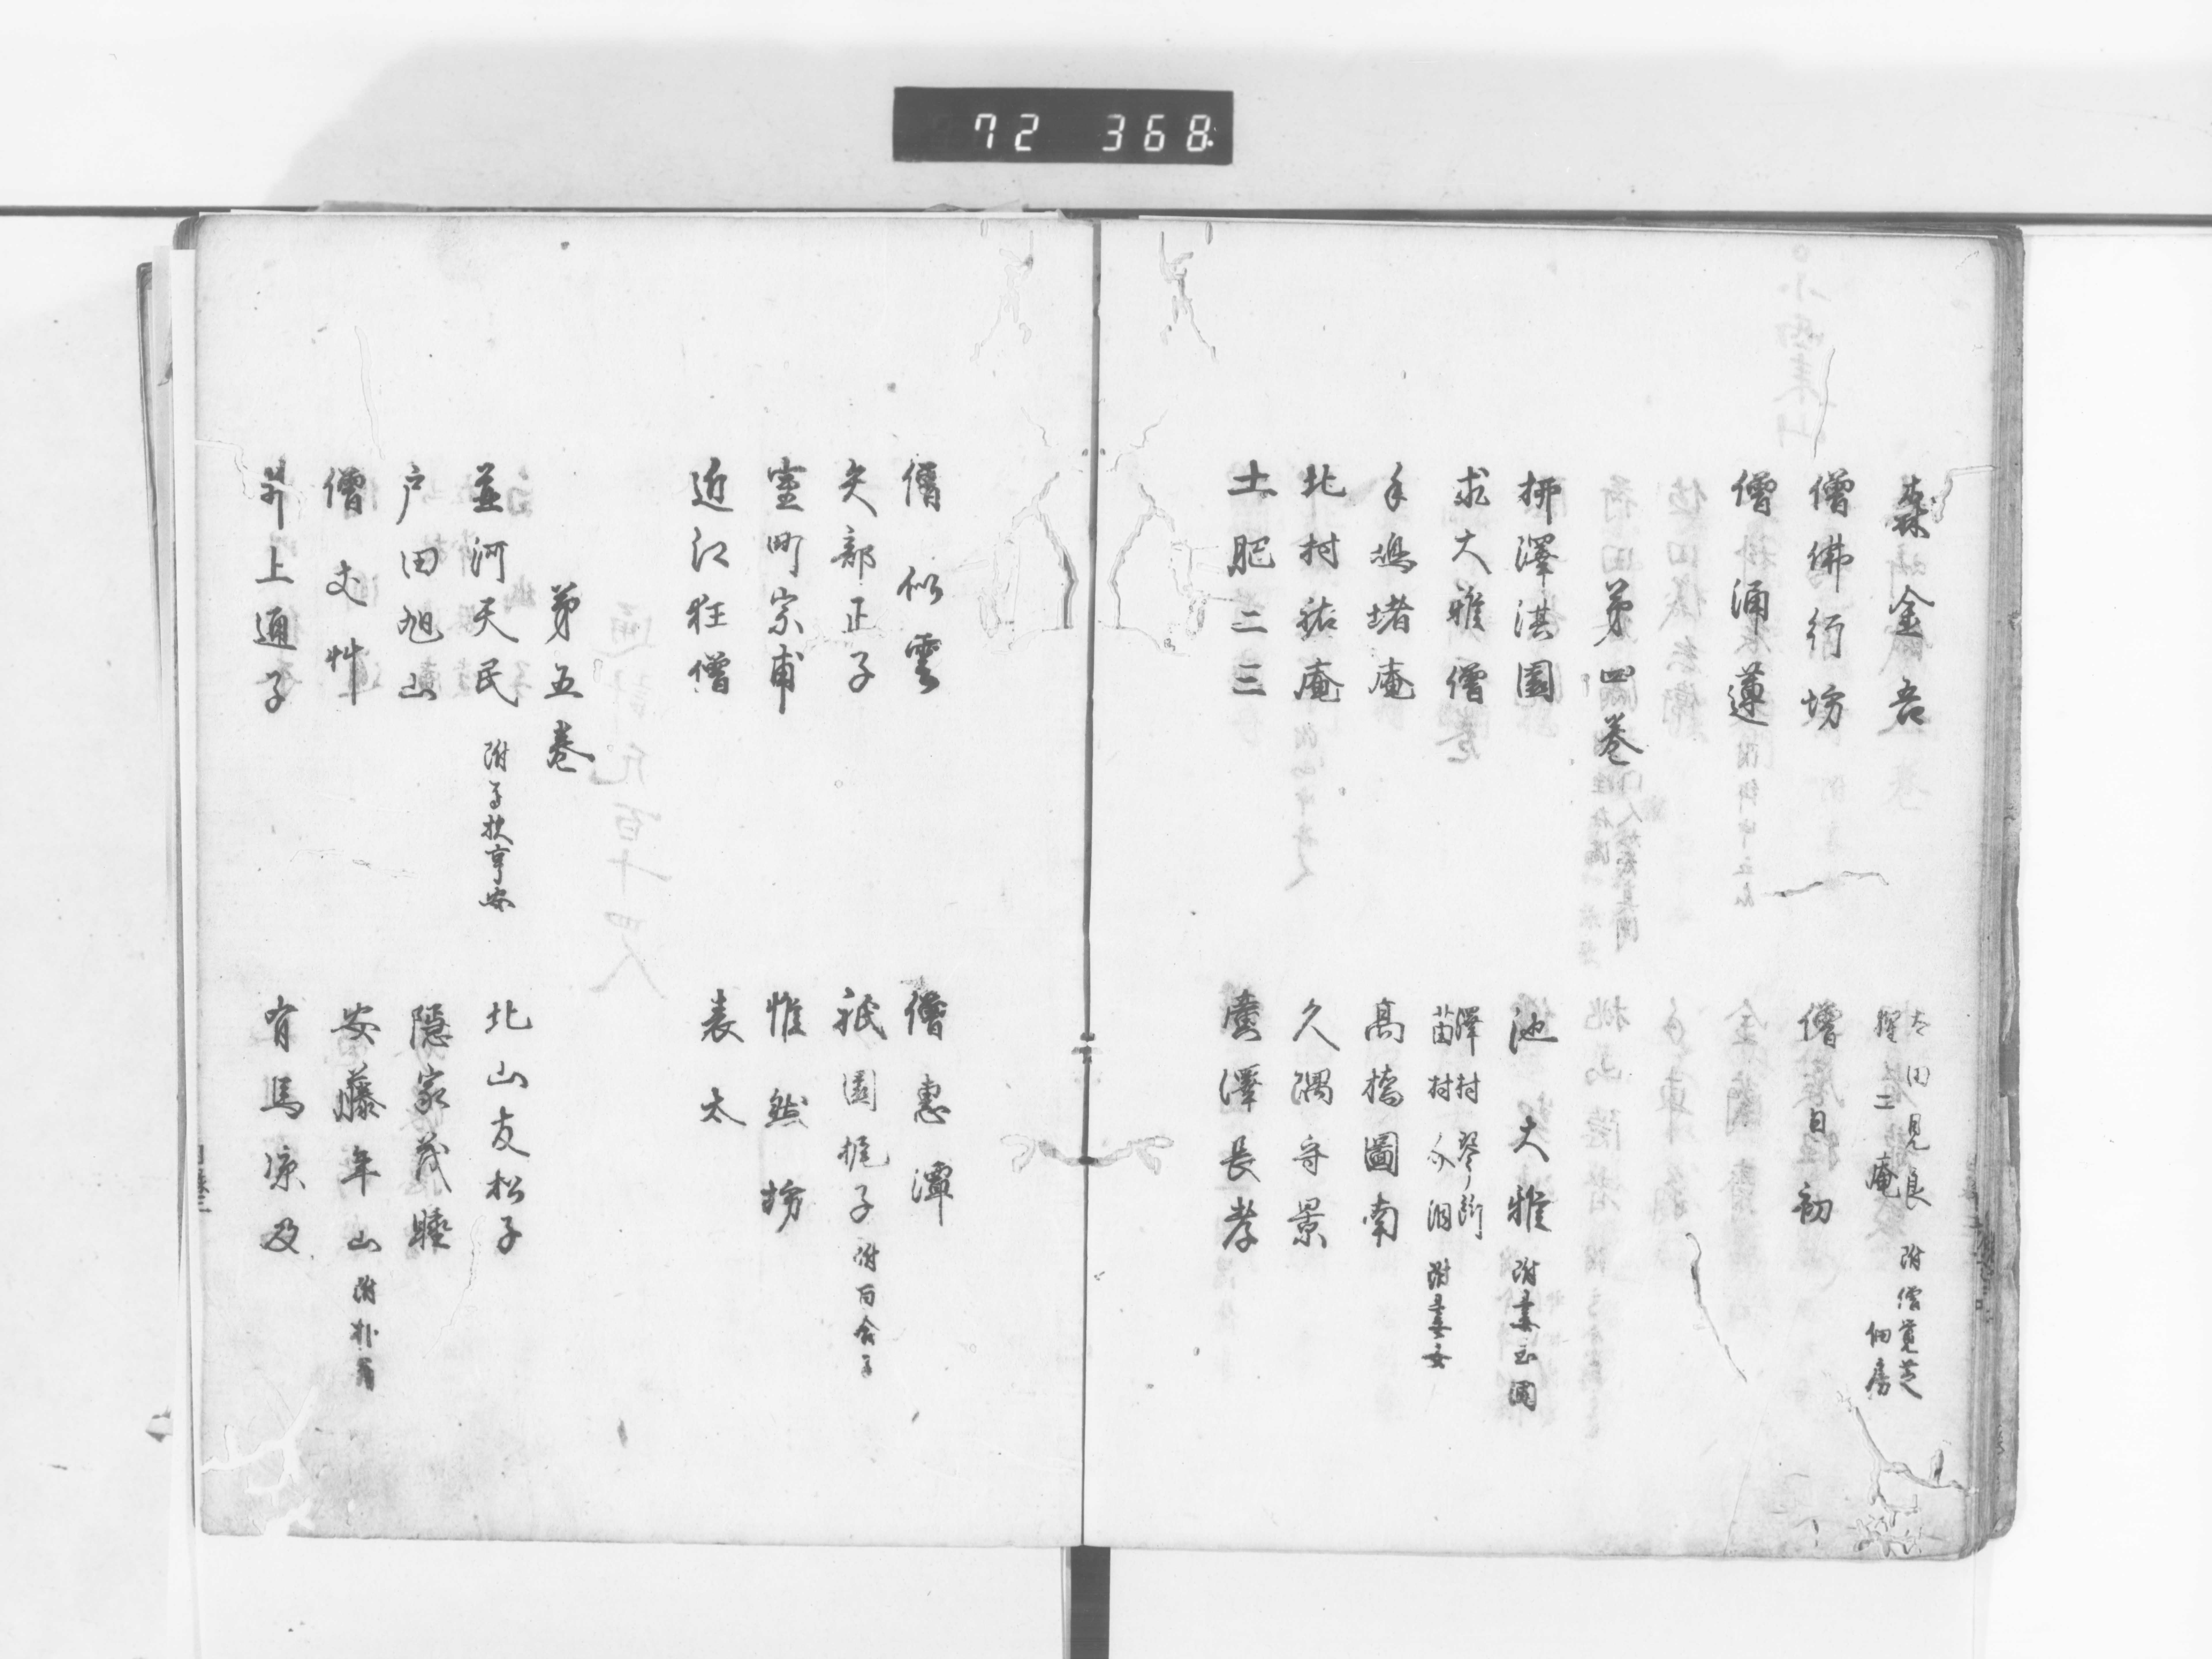 72 368
森金吾
太田見良 附僧覚芝
握二庵 佃房
僧佛行坊
僧日初
僧涌蓮
第四巻
栁澤淇園
池大雅 附妻玉瀾
求大雅僧
澤村琴所
苗村介洞 附妻女
手嶋堵庵
髙橋圖南
北村祐庵
久隅守景
土肥二三
廣澤長孝
僧似雲
僧惠潭
矢部正子
祇園梶子 附百合子
室町宗甫
惟然坊
近江狂僧
表太
第五巻
並河天民 附子扶亨安
北山友松子
戸田旭山
隠家茂睡
僧丈艸
安藤年山 附朴翁
井上通子
有馬凉及